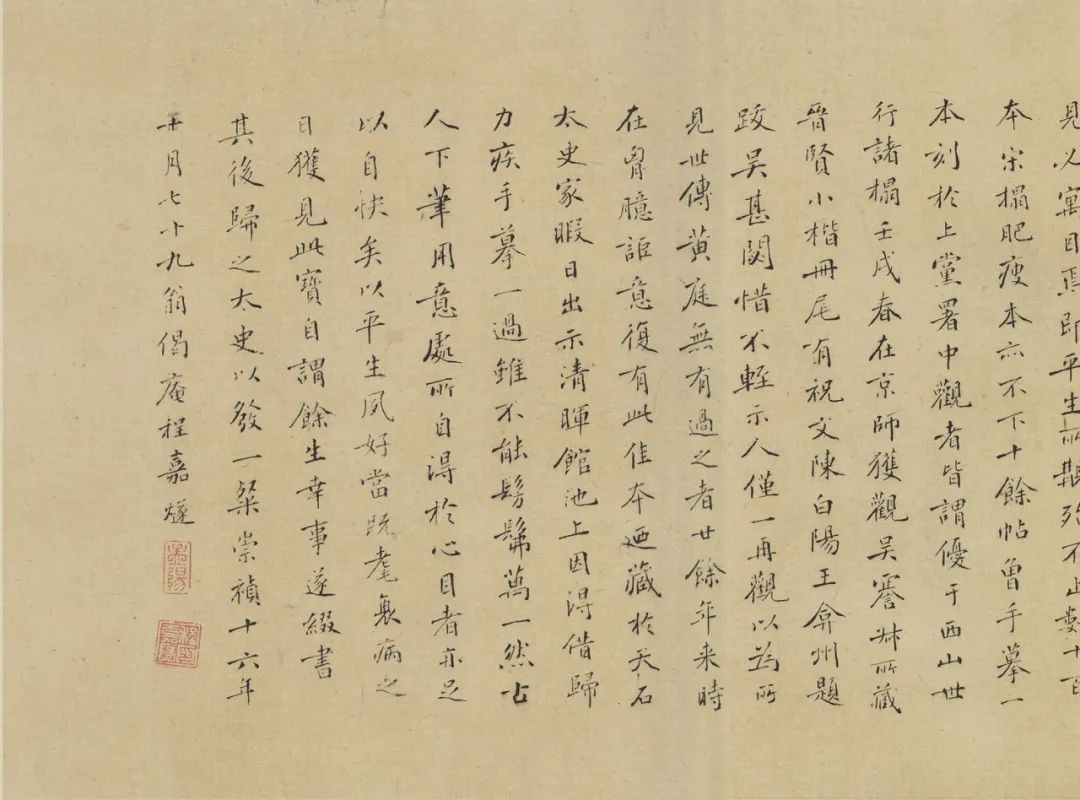 見以寓目焉即平生所觀殆不止數十百
本宋榻肥瘦本亦不下十餘帖曾手摹一
本刻於上黨署中觀者皆謂優于西山世
行諸榻壬戌春在京師獲觀吴騫叔所藏
晉賢小楷冊尾有祝文陳白陽王弇州題
跋吴甚閟惜不輕示人僅一再觀以為所
見世傳黄庭無有過之者廿餘年来時
在胷臆詎意復有此佳本迺藏於天石
太史家暇日出示清暉館池上因得借歸
力疾手摹一過雖不能髣髴萬一然古
人下筆用意處所自得於心目者亦足
以自快矣以平生夙好當既耄衰病之
日獲見此寶自謂餘生幸事遂綴書
其後歸之太史以發一粲崇禎十六年
十月七十九翁偈庵程嘉燧
孟陽